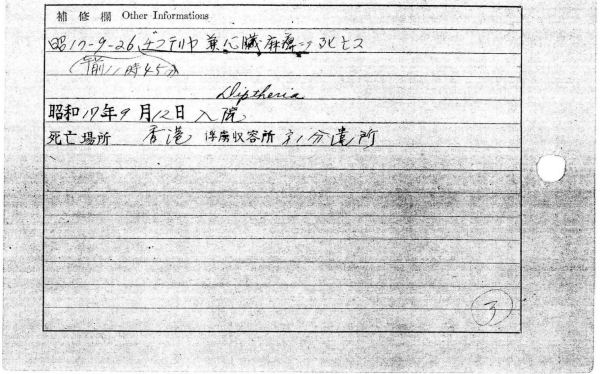 補修欄 Other Informations
昭17-9-26、チフテリヤ兼心臓麻痺ニテ死亡ス
(午前11時45分
Diptheria
昭和17年9月12日 入院
死亡場所 香港 俘虜収容所 第1分遣所
3